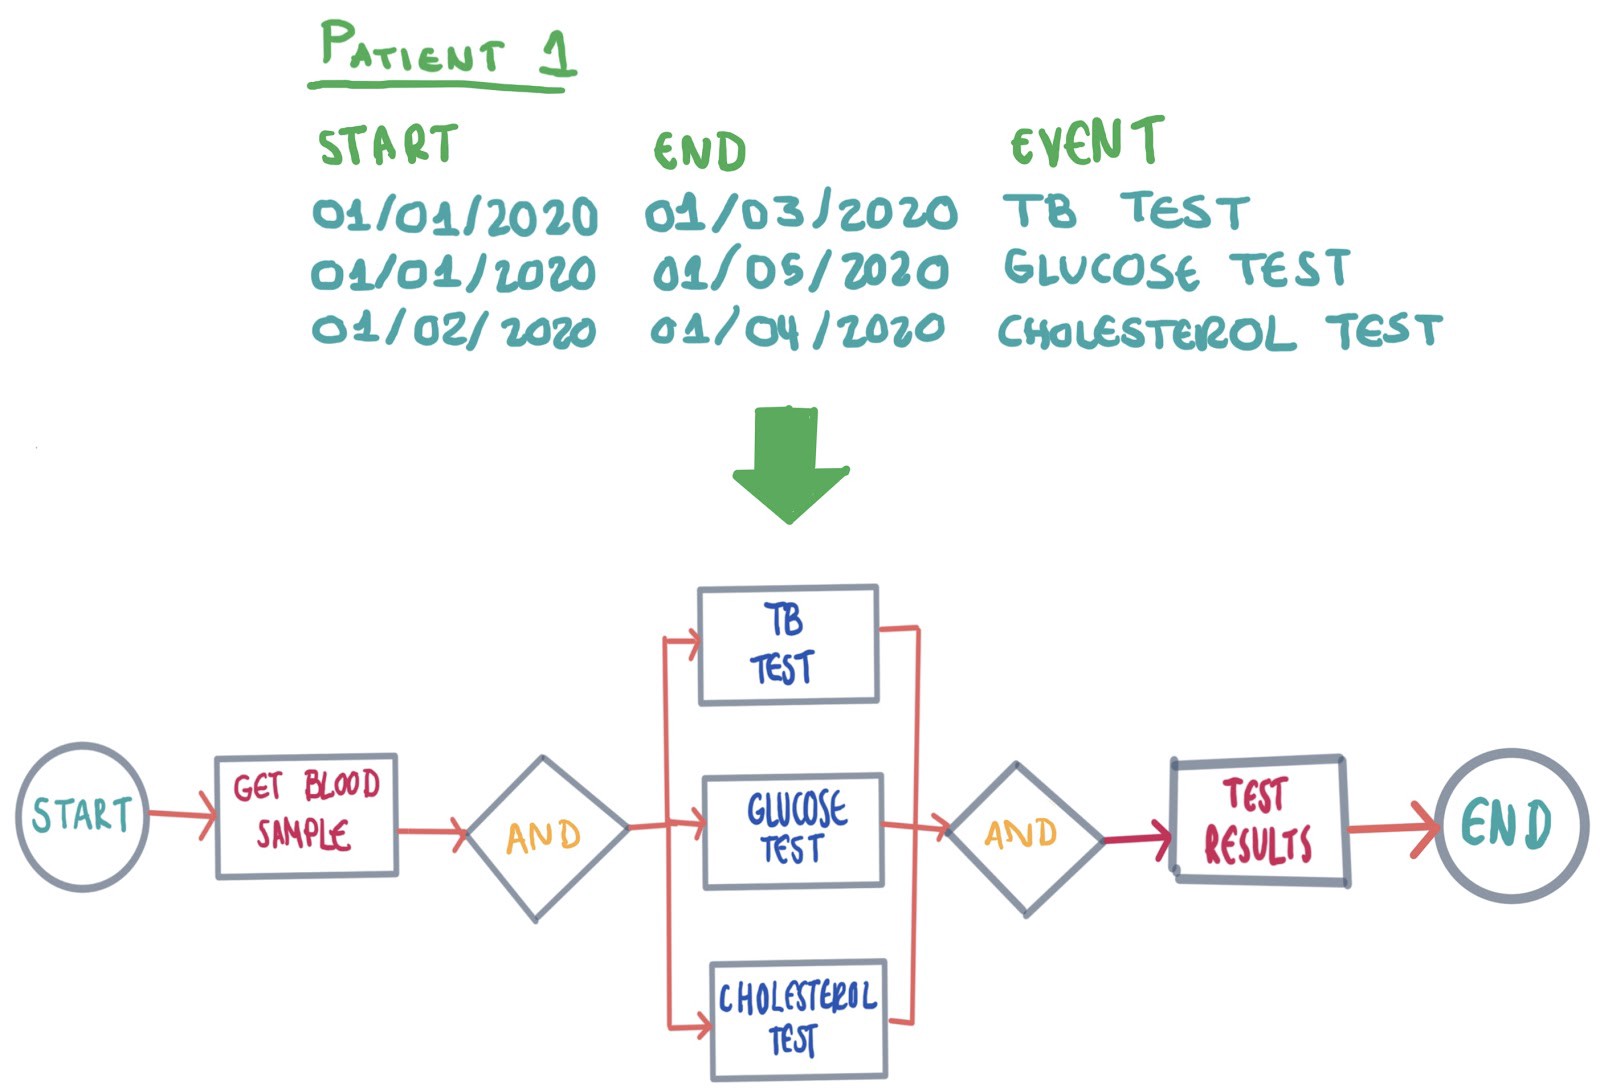 PATIENT 1
START END EVENT
01/01/2020 01/03/2020 TB TEST
01/01/2020 01/05/2020 GLUCOSE TEST
01/02/2020 01/04/2020 CHOLESTEROL TEST
TB
TEST
START
GET BLOOD
SAMPLE
AND
GLUCOSE
TEST
AND
TEST
RESULTS
END
CHOLESTEROL
TEST